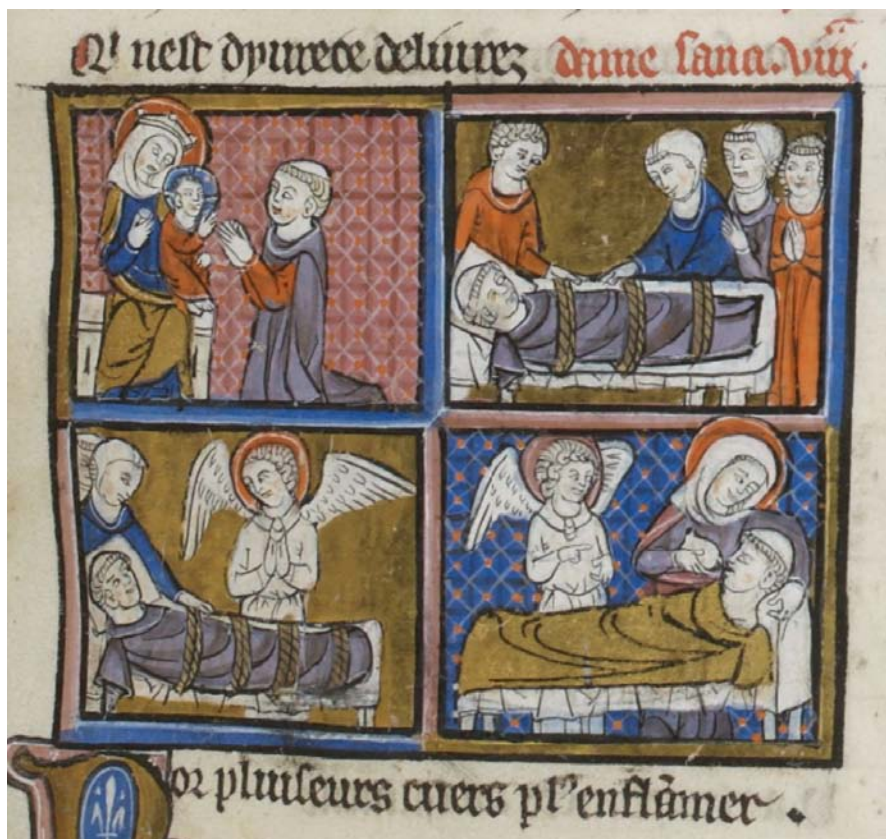 Q'i nest dyurece deliurez dame sanct. viii.
Por pluiseurs cuers pl' enflamer.